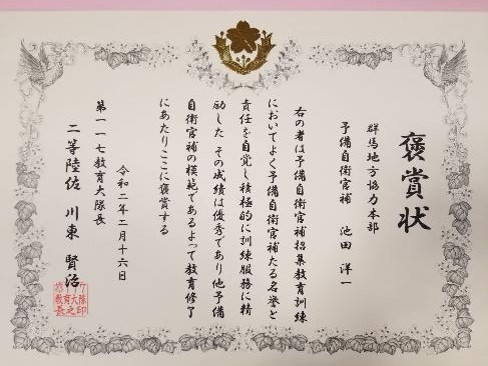 褒賞状
群馬地方協力本部
予備自衛官補 池田 洋一
右の者は予備自衛官補招集教育訓練
においてよく予備自衛官補たる名誉と
責任を自覚し積極的に訓練服務に精
励した その成績は優秀であり他予備
自衛官補の模範であるよって教育修了
にあたりここに褒賞する
令和二年二月十六日
第一一七教育大隊長
二等陸佐 川東 賢治